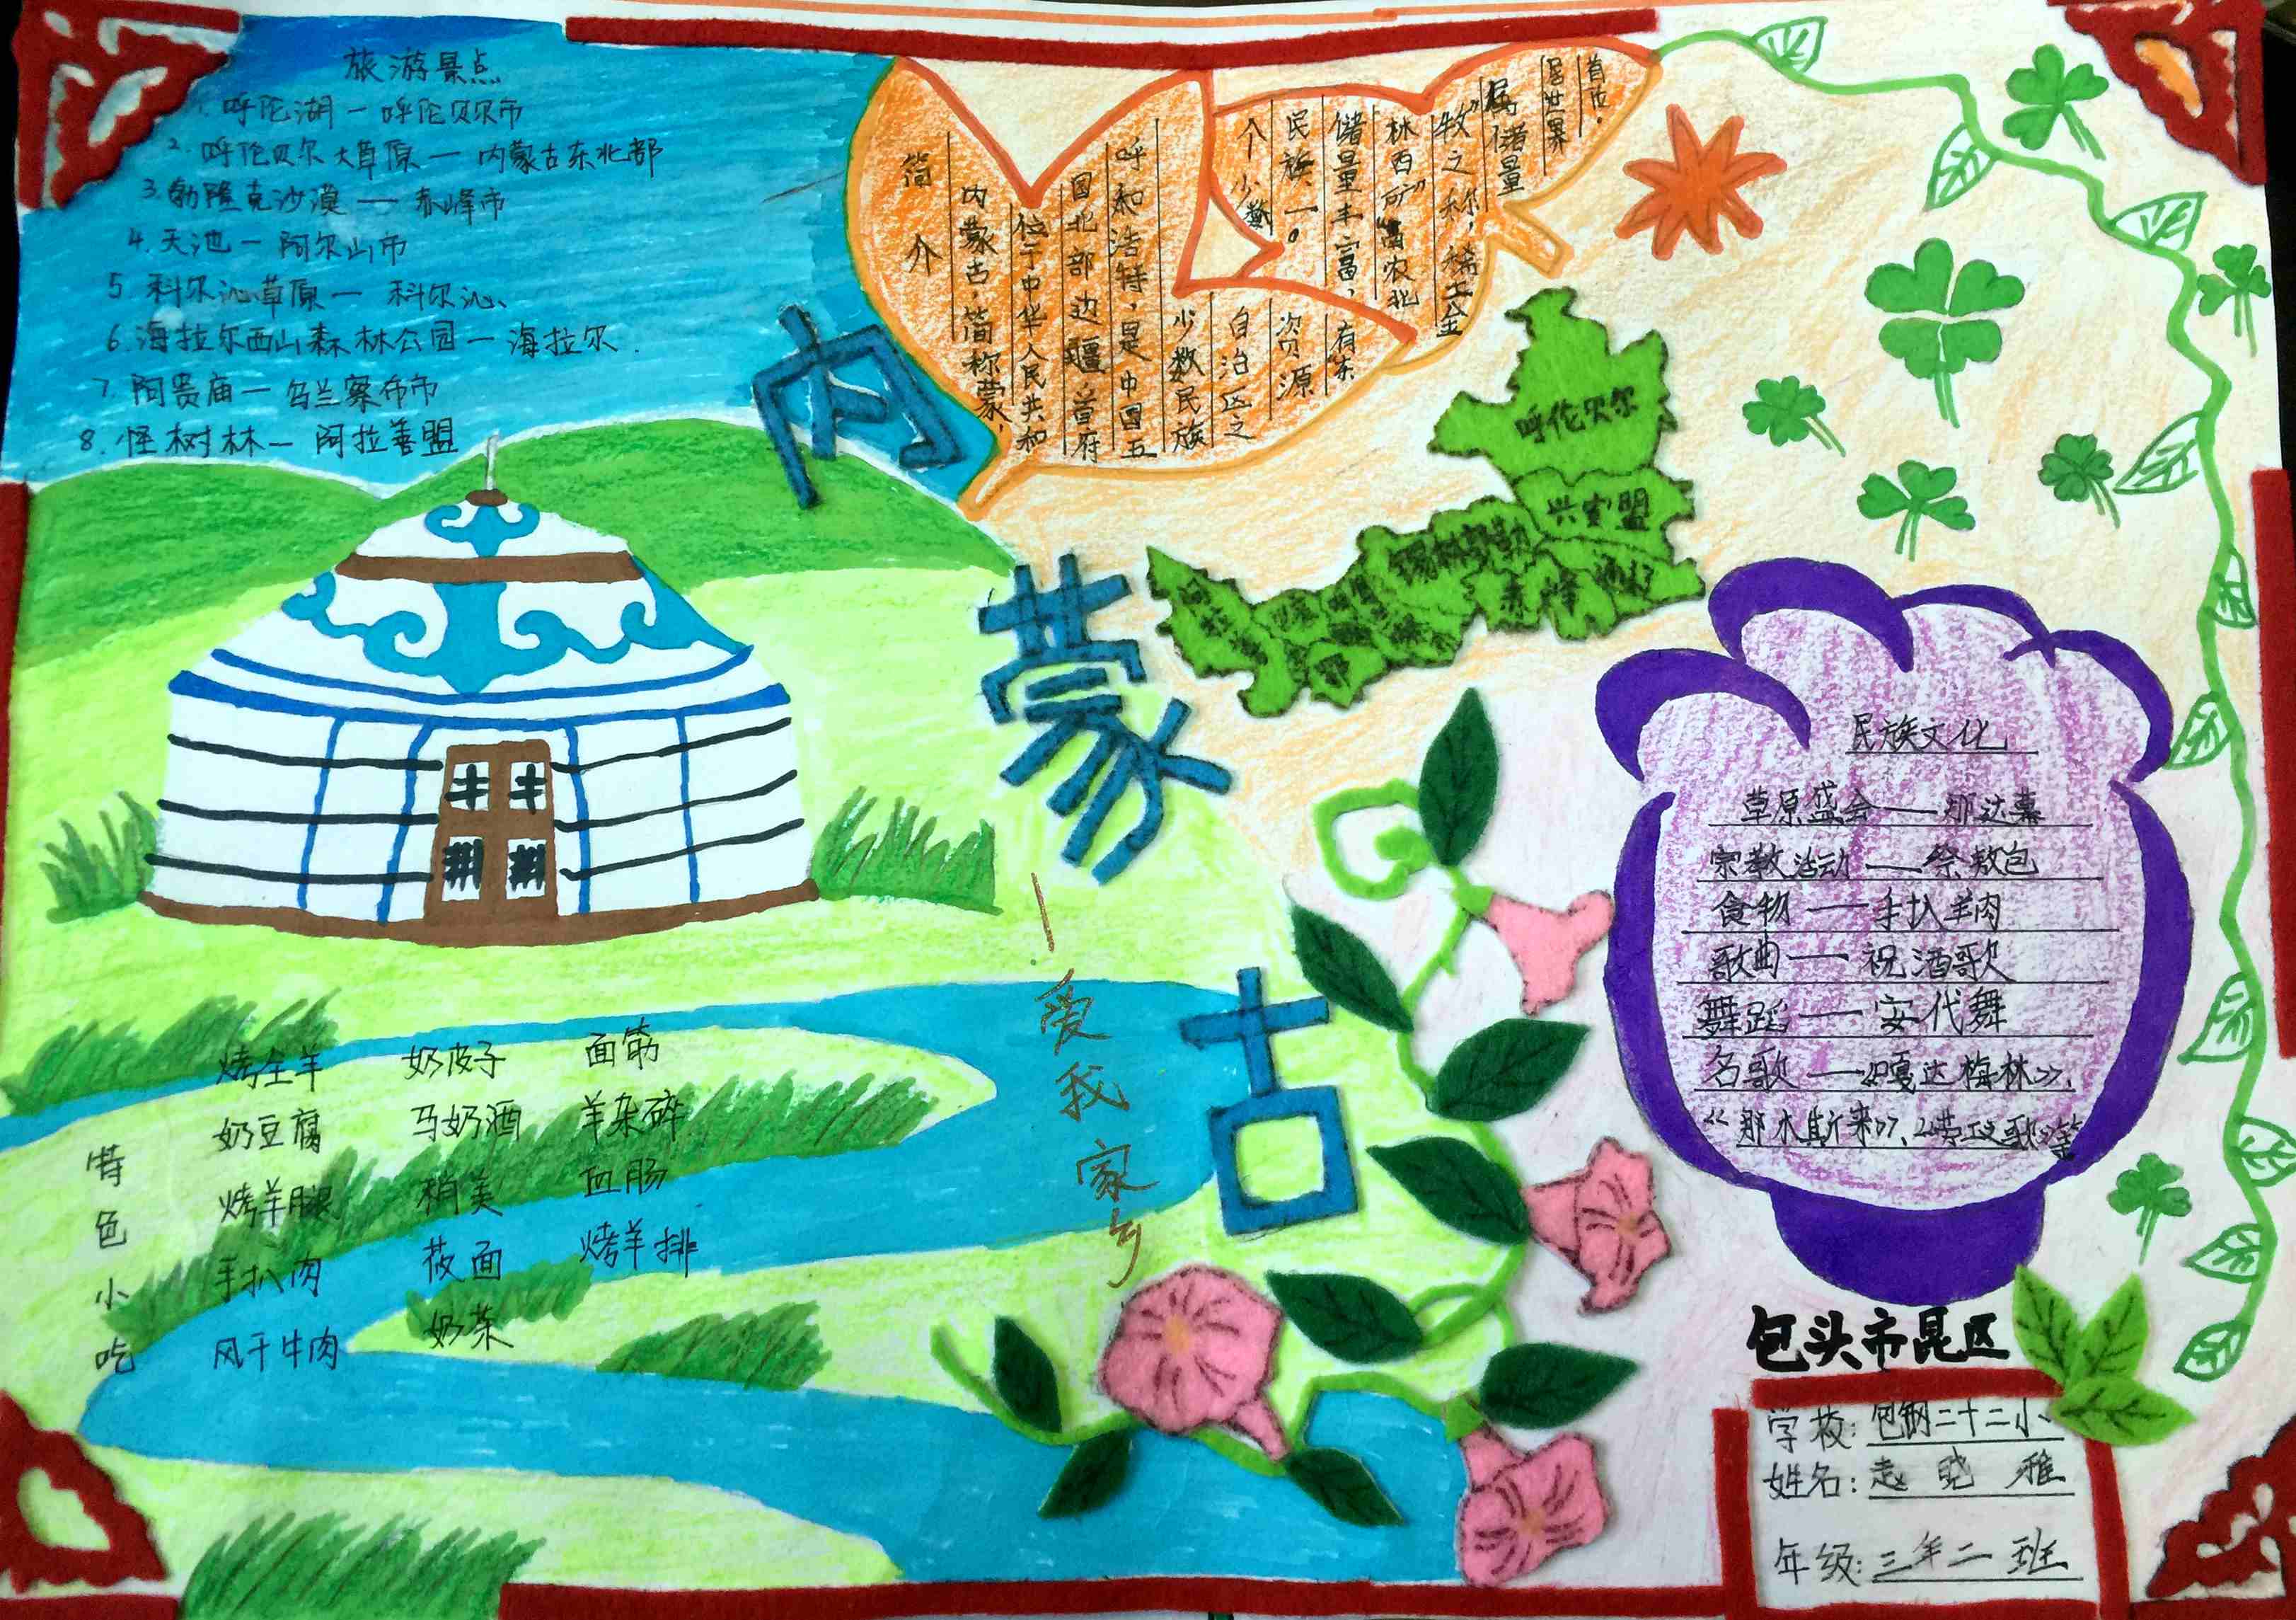 旅游景点
1. 呼伦湖 — 呼伦贝尔市
2. 呼伦贝尔大草原 — 内蒙古东北部
3. 勃隆克沙漠 — 赤峰市
4. 天池 — 阿尔山市
5. 科尔沁草原 — 科尔沁
6. 海拉尔西山森林公园 — 海拉尔.
7. 阿贵庙 — 乌兰察布市
8. 怪树林 — 阿拉善盟
简介
内蒙古，简称蒙，
位于中华人民共和
国北部边疆 首府
呼和浩特，是中国五
少数民族
个少数
自治区之
民族、一。
资源
储量丰富，
有东
林西
"富农北
牧"之称，稀土金
属储量
居世界
首位。
内
蒙
古
—爱我家乡
呼伦贝尔
兴安盟
锡林郭勒
赤峰
民族文化
草原盛会 — 那达慕
宗教活动 — 祭敖包
食物 — 手扒羊肉
歌曲 — 祝酒歌
舞蹈 — 安代舞
名歌 — 《嘎达梅林》、
《那木斯来》、
特色小吃
烤全羊 奶皮子 面筋
奶豆腐 马奶酒 羊杂碎
烤羊腿 稍美 血肠
手扒肉 莜面 烤羊排
风干牛肉 奶茶
包头市昆区
学校：包钢二十二小
姓名：赵晓雅
年级：三年二班